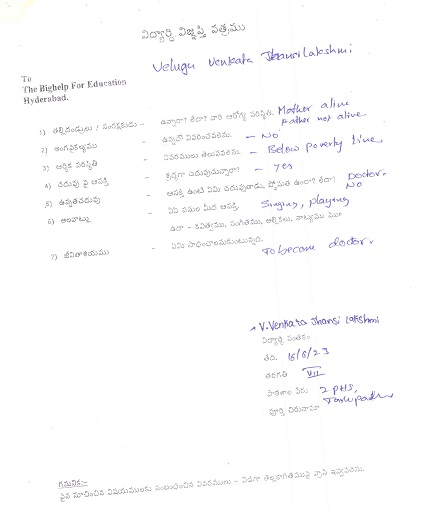 విద్యార్థి విజ్ఞప్తి పత్రము
Velugu Venkata Jhansi Lakshmi
To
The Bighelp For Education
Hyderabad.
1) తల్లిదండ్రులు / సంరక్షకుడు - ఉన్నారా? లేరా? వారి ఆరోగ్య పరిస్థితి. Mother alive
Father not alive
2) అంగవైకల్యము - ఉన్నచో వివరించవలెను. - No
3) ఆర్థిక పరిస్థితి - వివరములు తెలుపవలెను. - Below poverty line
4) చదువు పై ఆసక్తి - శ్రద్ధగా చదువుచున్నారా? - Yes
5) ఉన్నతచదువు - ఆసక్తి ఉంటే ఏమి చదువుతాడు, స్తోమతి ఉందా? లేదా? Doctor.
No
6) అలవాట్లు - ఏఏ పనుల మీద ఆసక్తి. Singing, playing
ఉదా - కవిత్వము, సంగీతము, అల్లికలు, నాట్యము
7) జీవితాశయము - ఏమి సాధించాలనుకుంటున్నది.
To become doctor.
V. Venkata Jhansi Lakshmi
విద్యార్థి సంతకం
తేది. 16/6/23
తరగతి VII
పాఠశాల పేరు ZPHS,
పూర్తి చిరునామా
గమనిక:-
పైన సూచించిన విషయములకు సంబంధించిన వివరములు - విడిగా తెల్లకాగితముపై వ్రాసి ఇవ్వవలెను.